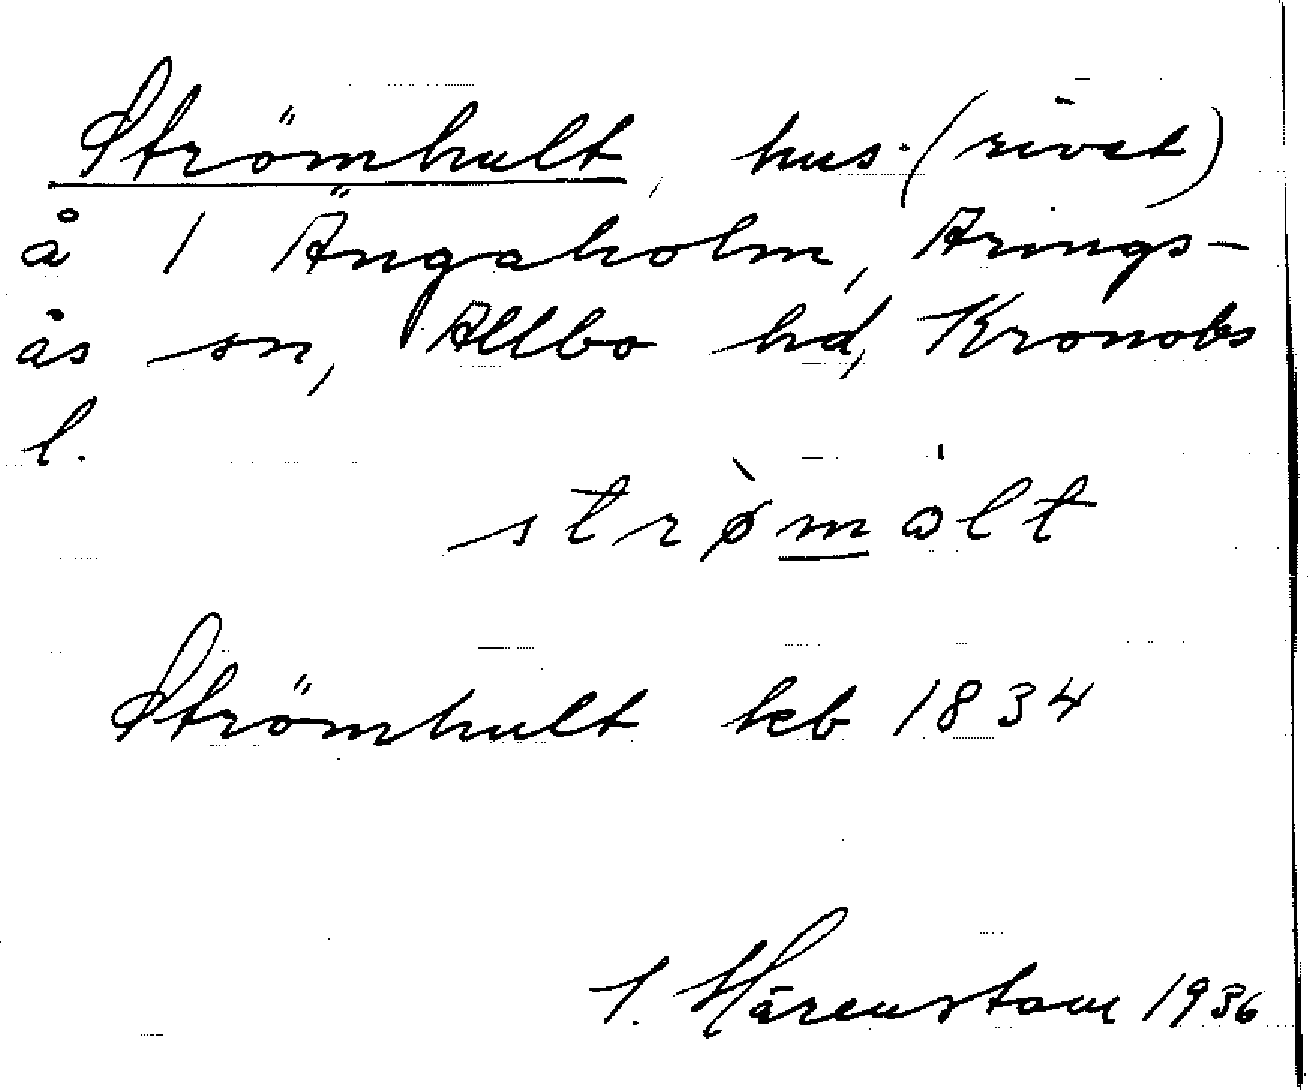 Strömhult, hus (rivet)
å 1 Ängaholm, Arings-
ås sn, Allbo hd, Kronobs
l.
strø̀mált
Strömhult leb 1834
I. Härenstam 1936